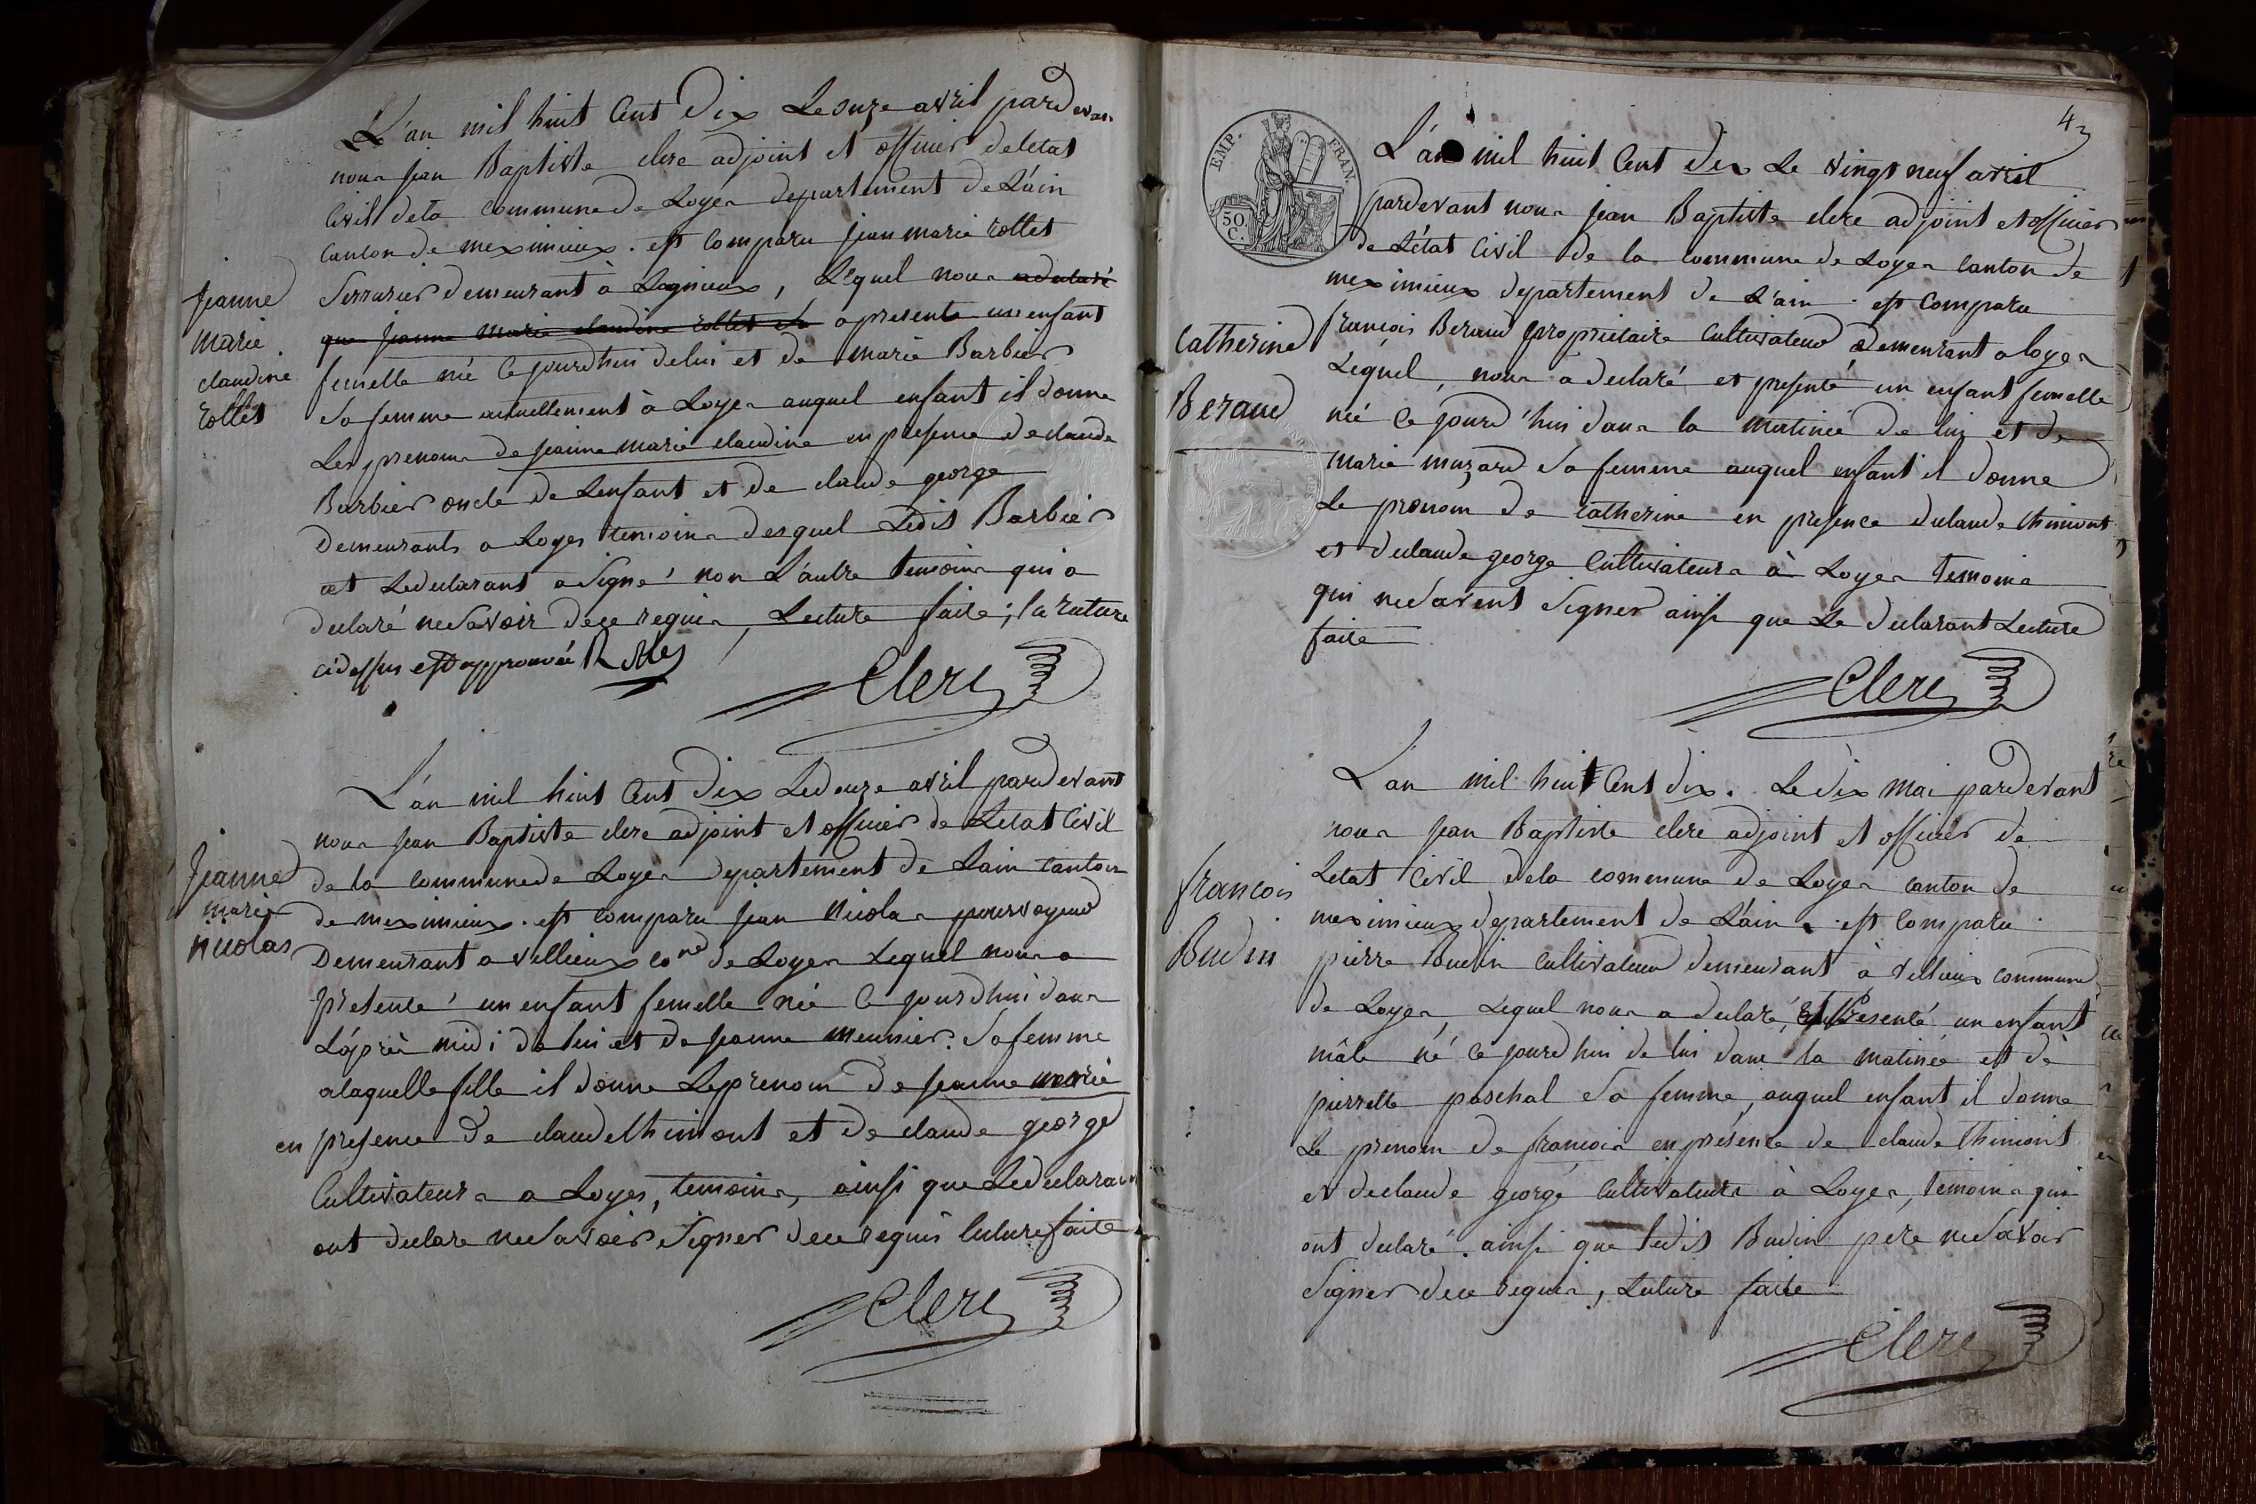 L'an mil huit Cent Dix Le onze avril pardevan
nous jean Baptiste clerc adjoint et officier deletat
Civil dela commune de Loyes departement de L'ain
canton de meximieux . est Comparu jean marie rollet
Serrurier demeurant à Lagnieux, Lequel nous a declaré
que jeanne marie claudine rollet a presenté un enfant
femelle né Ce jourdhui de lui et de marie Barbier
sa femme actuellement à Loyes auquel enfant il donne
Les prenoms de jeanne marie claudine en presence de claude
Barbier oncle de Lenfant et de claude george
Demeurants a Loyes temoins desquel Ledit Barbier
et Ledeclarant a Signé non L'autre temoins qui a
declaré ne Savoir dece requis, Lecture faite; la rature
cidessus est approuvée Rollet
Clerc
jeanne
marie
claudine
rollet
L'an mil huit Cent Dix Ledouze avril pardevant
nous jean Baptiste clerc adjoint et officier de Letat Civil
de la commune de Loyes departement de Lain canton
de meximieux . est comparu jean Nicolas pourvoyeur
Demeurant a villieux cone de Loyes Lequel nous a
presenté un enfant femelle née Ce jourdhui dans
L'après midi de lui et de jeanne meunier Sa femme
alaquelle fille il donne Leprenom de jeanne marie
en presence de claude thimont et de claude george
Cultivateurs a Loyes, temoins, ainsi que Ledeclarant
ont declare ne Savoir Signer dece requis lecture faite
Clerc
jeanne
marie
nicolas
43
EMP. FRAN.
50 C.
L'an mil huit Cent dix Le vingt neuf avril
pardevant nous jean Baptiste clerc adjoint et officier
de L'état Civil de la commune de Loyes canton de
meximieux departement de L'ain . est Comparu
françois Beraud propriétaire Cultivateur demeurant a loyes
Lequel, nous a declaré et presenté un enfant femelle
né Ce jourd'hui dans la matinée de lui et de
marie muzard sa femme auquel enfant il donne
Le prenom de catherine en presence declaude thimont
et declaude george Cultivateurs à Loyes temoins
qui ne Savent Signer ainsi que Le declarant Lecture
faite
Clerc
Catherine
Beraud
L'an mil huit Cent dix . Le dix mai pardevant
nous jean Baptiste clerc adjoint et officier de
Letat Civil dela commune de Loyes canton de
meximieux departement de L'ain . est comparu
pierre Budin cultivateur demeurant à villieux commune
de Loyes, Lequel nous a declaré, Et Presenté un enfant
mâle né ce jourdhui de lui dans la matinée et de
pierrette paschal sa femme, auquel enfant il donne
Le prenom de francois en présence de claude thimont
et declaude george Cultivateurs à Loyes, temoins qui
ont declaré . ainsi que ledit Budin père ne Savoir
Signer dece requis, Lecture faite
Clerc
francois
Budin